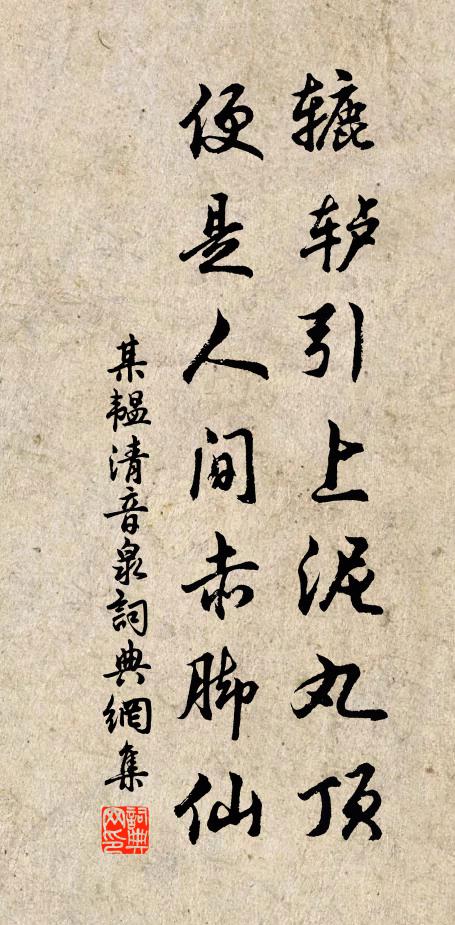 辘轳引上泥丸顶
便是人间赤脚仙
某韫清音泉詞典網集
詞典网印